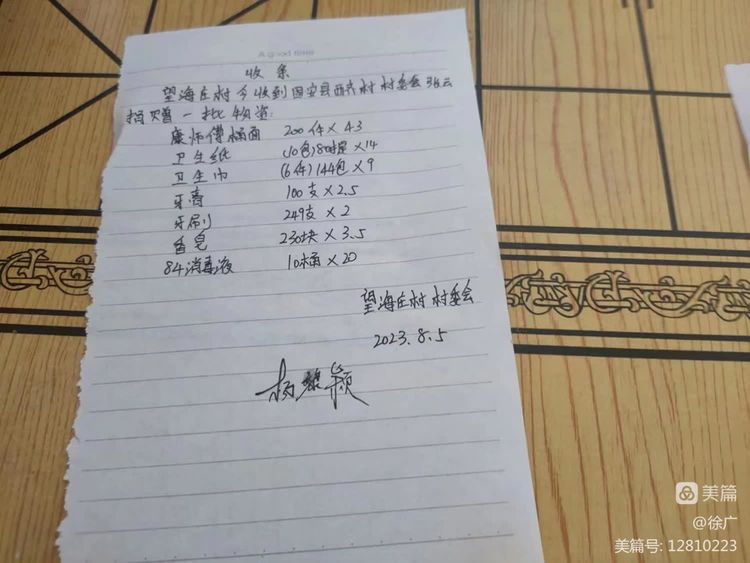 A good time
收条
望海庄村今收到固安县西 村村委会张云
捐赠一批物资:
康师傅桶面 200件×43
卫生纸 (10包)80提×14
卫生巾 (6件)144包×9
牙膏 100支×2.5
牙刷 249支×2
香皂 230块×3.5
84消毒液 10桶×20
望海庄村村委会
2023.8.5
杨 颖
美篇
@徐广
美篇号: 12810223